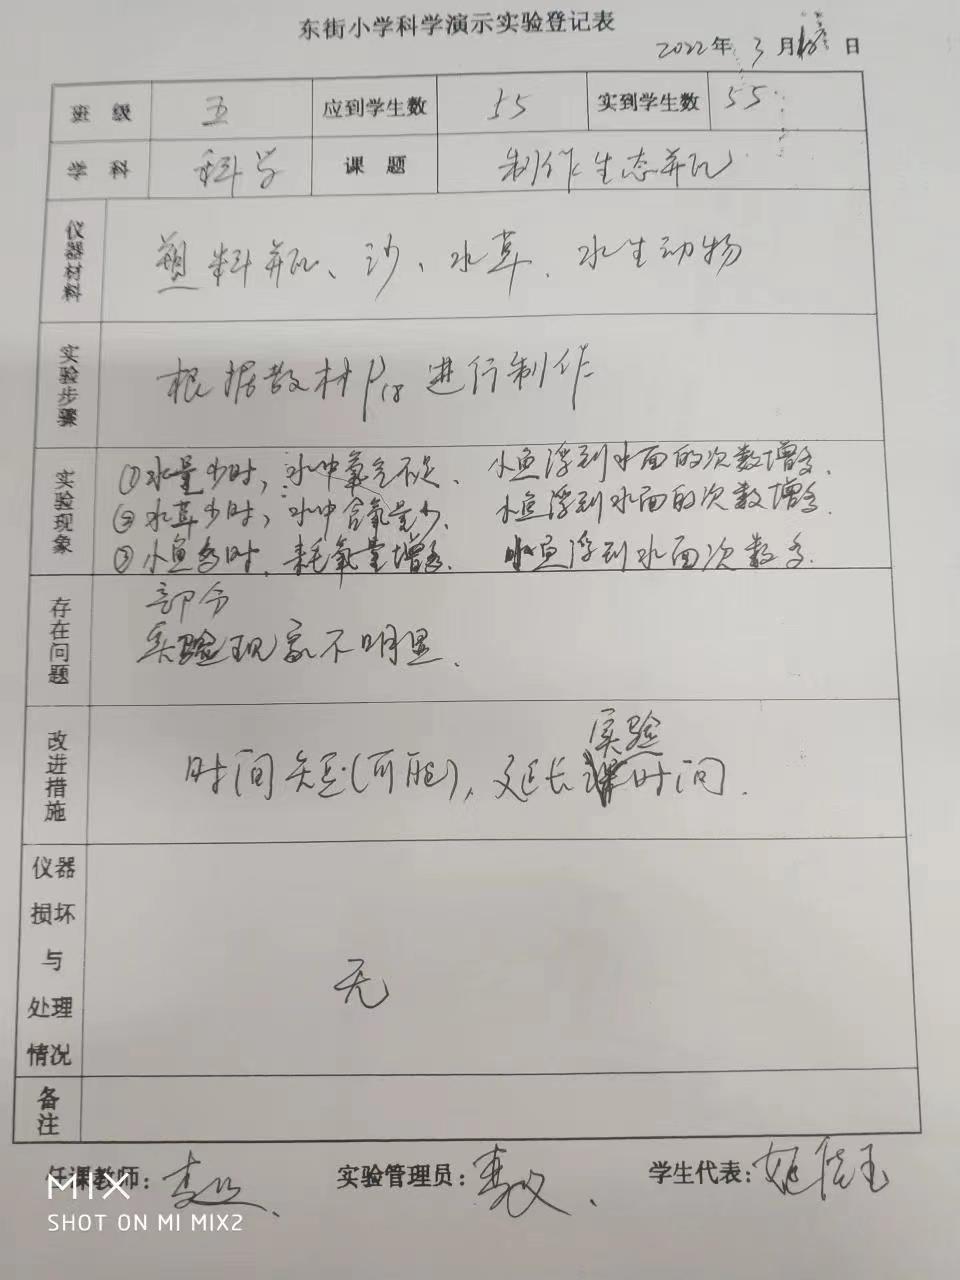 东街小学科学演示实验登记表
2022年 3月 日
班级 五 应到学生数 55 实到学生数 55
学科 科学 课题 制作生态瓶
仪器材料 塑料瓶、沙、水草、水生动物
实验步骤 根据教材P18进行制作
实验现象 ①水量少时,水中氧气不足、小鱼浮到水面的次数增多.
②水草少时,水中含氧量少、小鱼浮到水面的次数增多.
③小鱼多时、耗氧量增多、小鱼浮到水面次数多.
存在问题 部分
实验现象不明显.
改进措施 实验
时间短(可能),延长时间.
仪器损坏与处理情况 无
备注
任课教师: 实验管理员: 学生代表:
MIX
SHOT ON MI MIX2